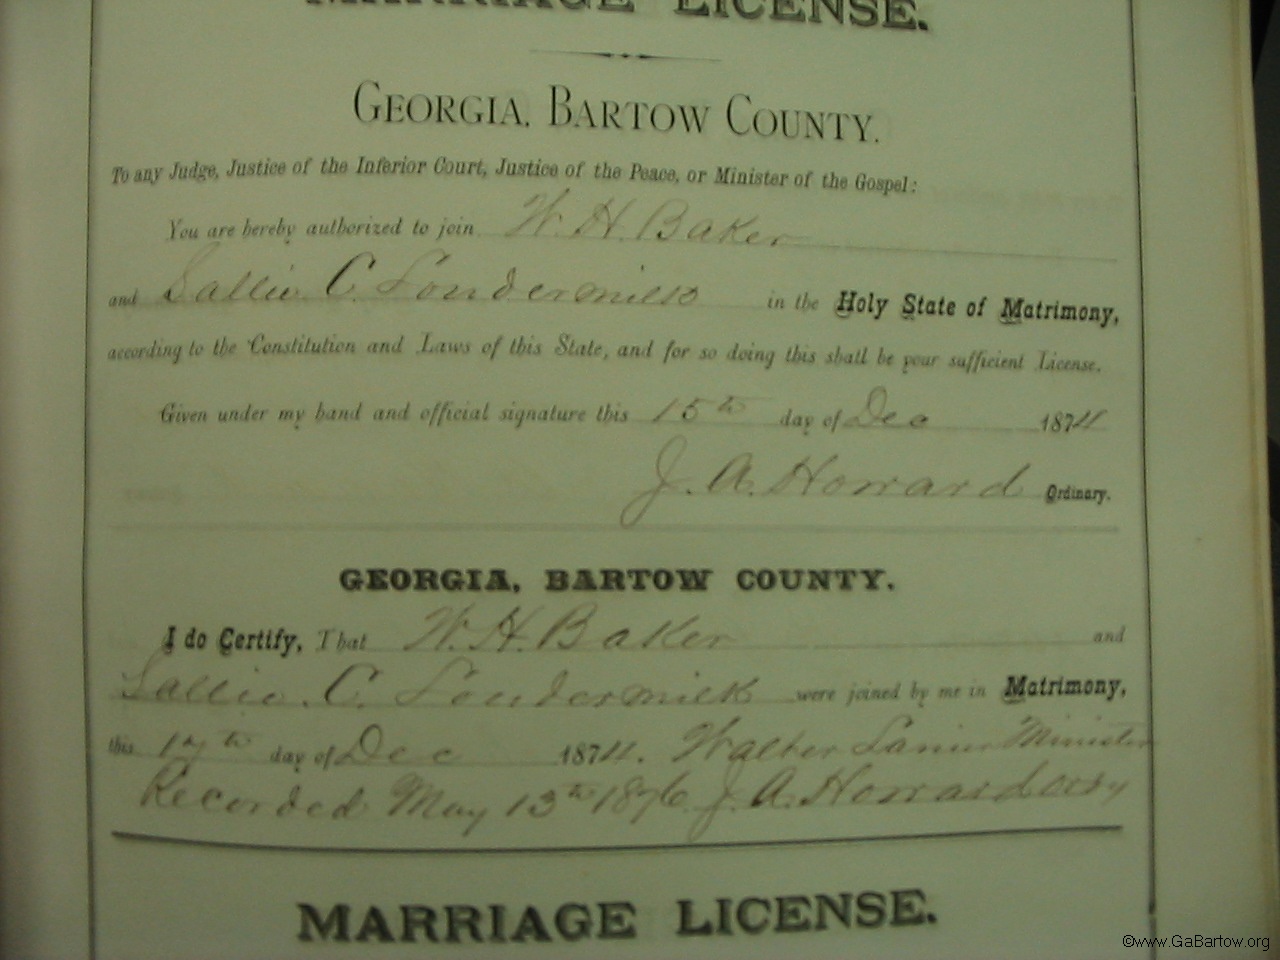 MARRIAGE LICENSE.
GEORGIA, BARTOW COUNTY.
To any Judge, Justice of the Inferior Court, Justice of the Peace, or Minister of the Gospel:
You are hereby authorized to join W. H. Baker
and Sallie C. Loudermilk in the Holy State of Matrimony,
according to the Constitution and Laws of this State, and for so doing this shall be your sufficient License.
Given under my hand and official signature this 15th day of Dec 1874
J. A. Howard Ordinary.
GEORGIA, BARTOW COUNTY.
I do Certify, That W. H. Baker and
Sallie. C. Loudermilk were joined by me in Matrimony,
this 17th day of Dec 1874. Walter Minister
Recorded May 13th 1876 J. A. Howard ordy
MARRIAGE LICENSE.
©www.GaBartow.org